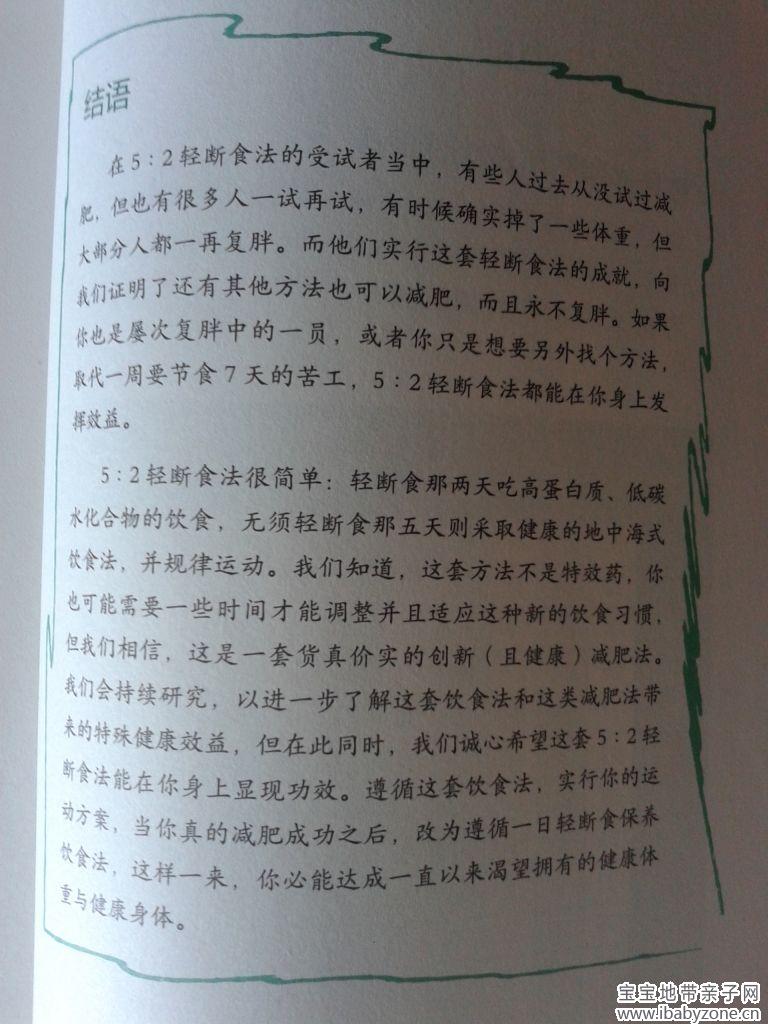 结语
在5:2轻断食法的受试者当中，有些人过去从没试过减
肥，但也有很多人一试再试，有时候确实掉了一些体重，但
大部分人都一再复胖。而他们实行这套轻断食法的成就，向
我们证明了还有其他方法也可以减肥，而且永不复胖。如果
你也是屡次复胖中的一员，或者你只是想要另外找个方法，
取代一周要节食7天的苦工，5:2轻断食法都能在你身上发
挥效益。
5:2轻断食法很简单：轻断食那两天吃高蛋白质、低碳
水化合物的饮食，无须轻断食那五天则采取健康的地中海式
饮食法，并规律运动。我们知道，这套方法不是特效药，你
也可能需要一些时间才能调整并且适应这种新的饮食习惯，
但我们相信，这是一套货真价实的创新（且健康）减肥法。
我们会持续研究，以进一步了解这套饮食法和这类减肥法带
来的特殊健康效益，但在此同时，我们诚心希望这套5:2轻
断食法能在你身上显现功效。遵循这套饮食法，实行你的运
动方案，当你真的减肥成功之后，改为遵循一日轻断食保养
饮食法，这样一来，你必能达成一直以来渴望拥有的健康体
重与健康身体。
宝宝地带亲子网
www.ibabyzone.cn